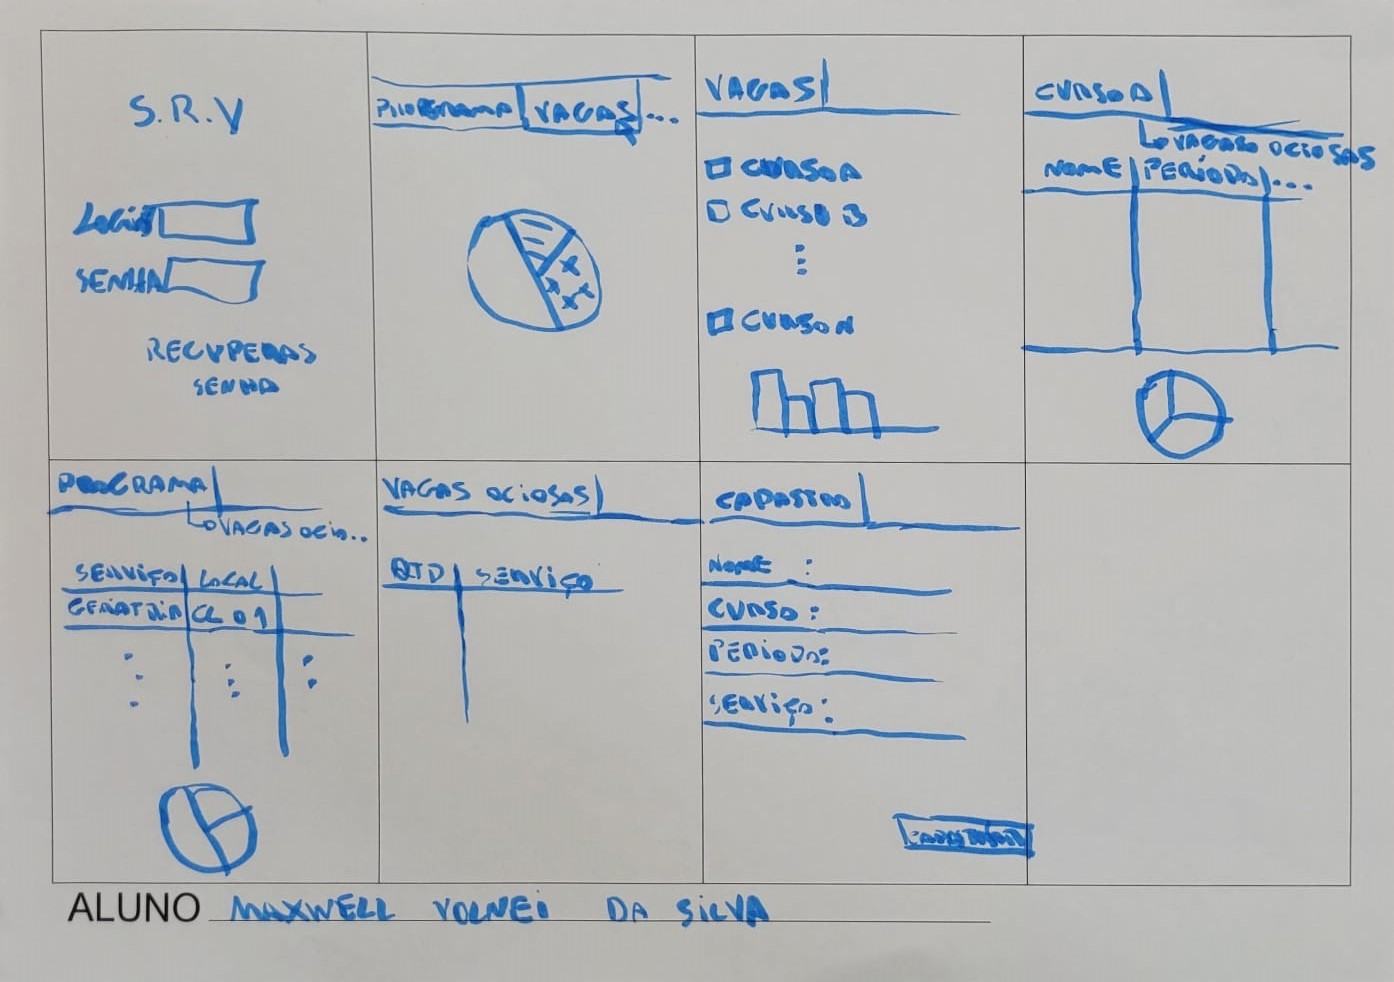 S.R.V
LOGIN
SENHA
RECUPERAR
SENHA
PROGRAMA VAGAS ...
VAGAS
CURSO A
CURSO B
CURSO N
CURSO A
VAGAS OCIOSAS
NOME PERÍODO ...
PROGRAMA
VAGAS OCIO..
SERVIÇO LOCAL
GERIATRIA CL 01
VAGAS OCIOSAS
QTD SERVIÇO
CADASTRO
NOME :
CURSO :
PERÍODO:
SERVIÇO:
CADASTRAR
ALUNO MAXWELL VOLNEI DA SILVA